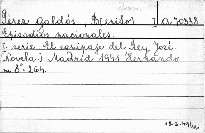 Perez Galdós, Benito I a 70328
Episodios nacionales.
2. serie. El equipaje del Rey José
(Novela.) Madrid 1941 Hernando
m. 8°. 264.